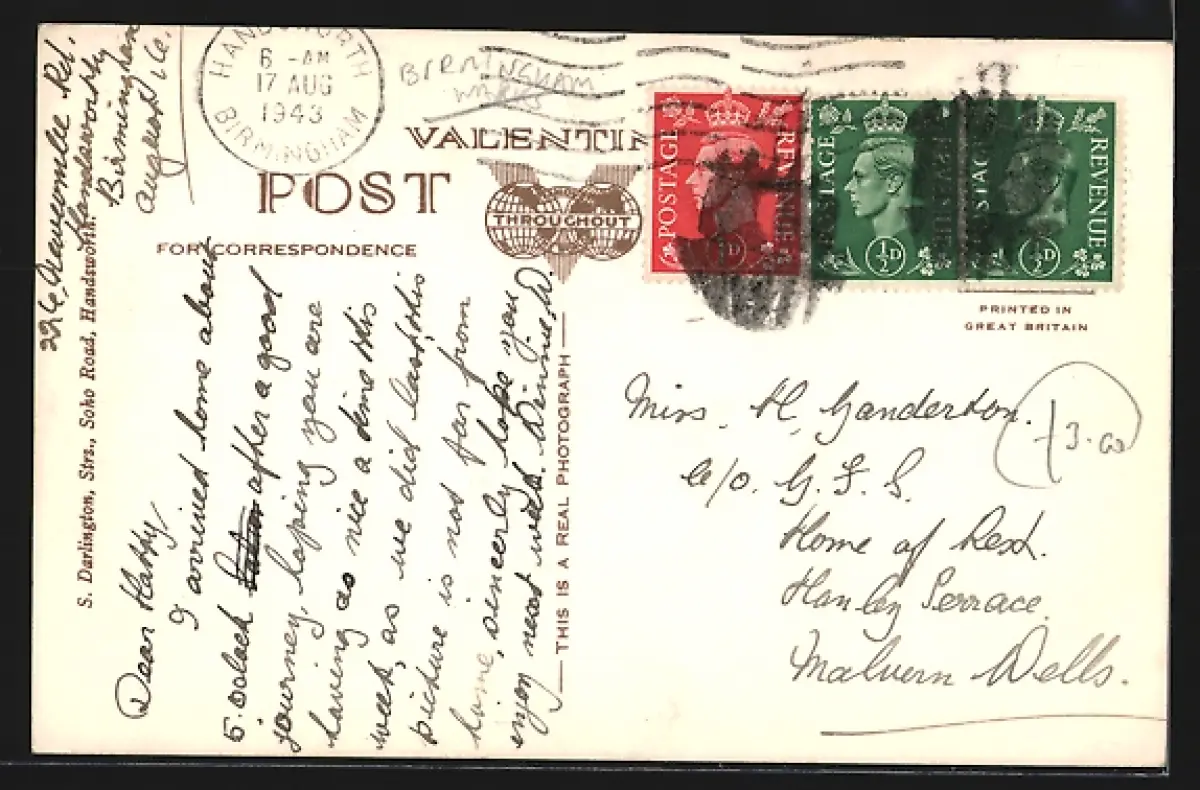 226, Rd.
Handsworth
Birmingham
August 16.
HANDSWORTH
6 - AM
17 AUG
1943
BIRMINGHAM
BIRMINGHAM
VALENTIN
POST
THROUGHOUT
FOR CORRESPONDENCE
POSTAGE REVENUE
1D
POSTAGE
½D
POSTAGE REVENUE
½D
PRINTED IN
GREAT BRITAIN
S. Darlington, Strs., Soho Road, Handsworth.
THIS IS A REAL PHOTOGRAPH
Dear Hatty,
I arrived home about
5. oclock after a good
journey, hoping you are
having as nice a time this
week, as we did last, this
picture is not far from
home, sincerly hope you
enjoy next week. Winnie W.
Miss. H. Ganderton.
c/o. G. F. S.
Home of Rest.
Hanley Terrace.
Malvern Wells.
3.00